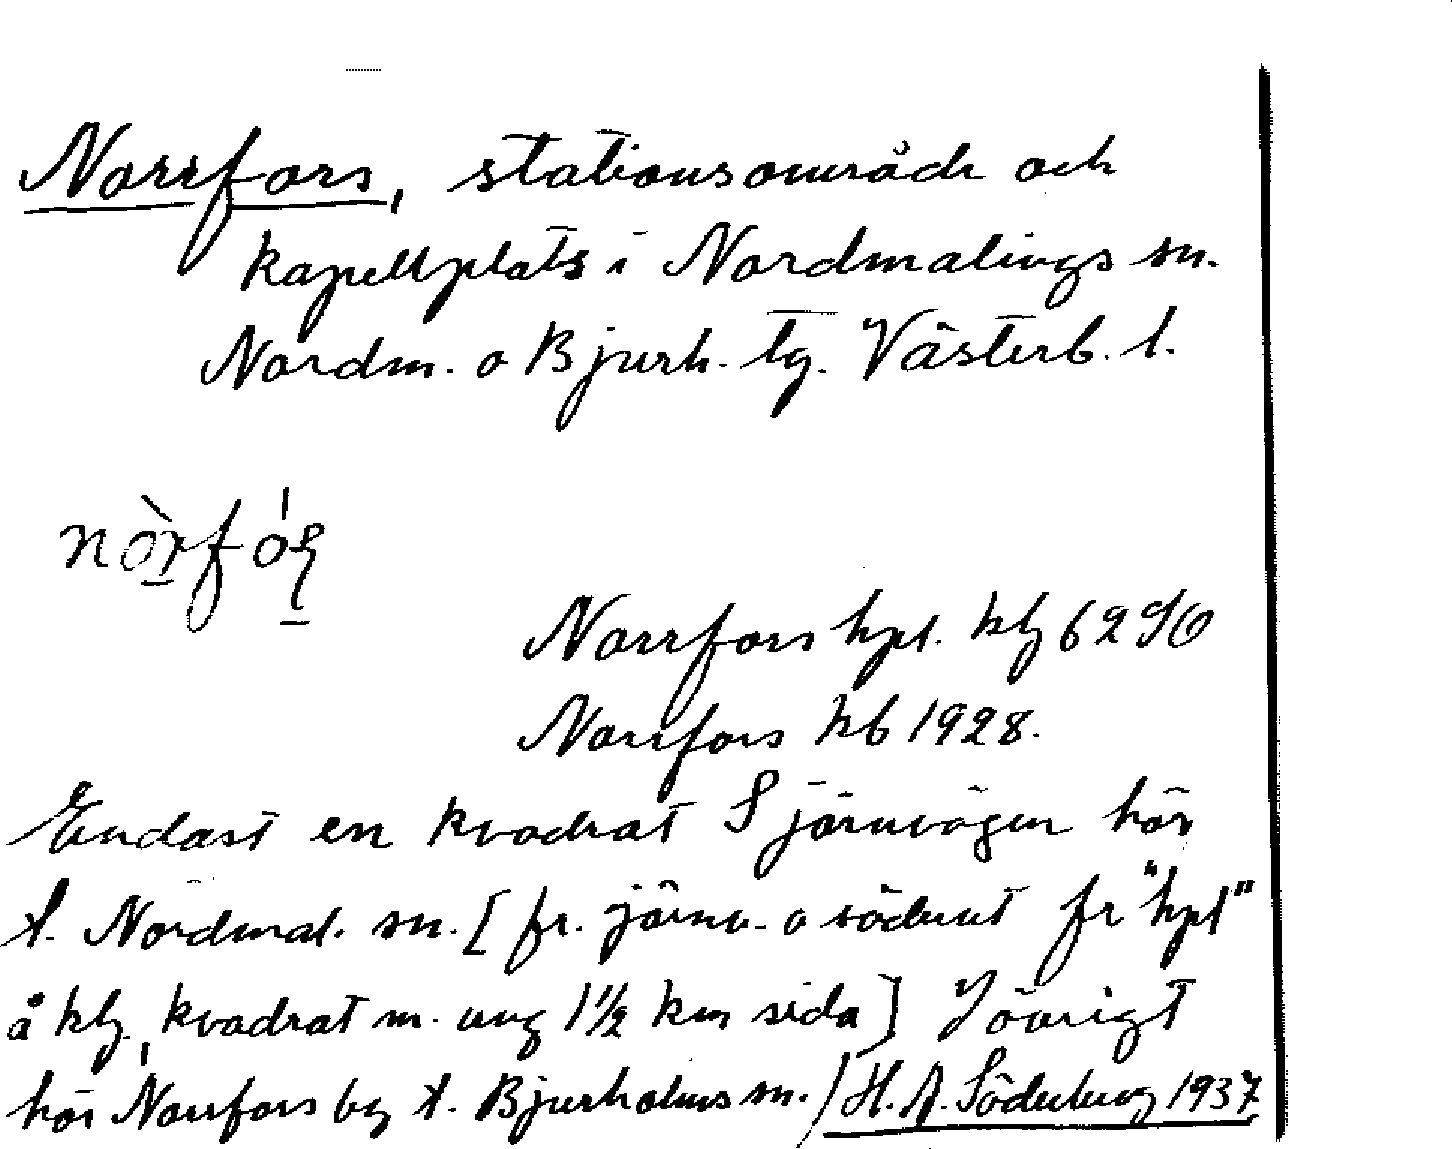 Norrfors, stationsområde och
kapellplats i Nordmalings sn.
Nordm. o Bjurh. tg. Västerb. l.
nòrfóꞩ
Norrfors hpl. kbl 62 SO
Norrfors kb 1928.
Endast en kvadrat S järnvägen hör
t. Nordmal. sn. [fr. järnv. o söderut fr "hpl"
å kbl, kvadrat m. ung 1½ km sida] I övrigt
hör Norrfors by t. Bjurholms sn. / H. A. Söderberg 1937